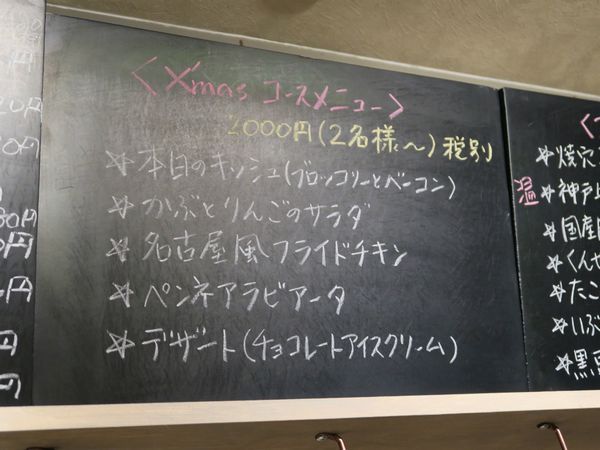 〈X'mas コースメニュー〉
2000円(2名様〜)税別
☆本日のキッシュ(ブロッコリーとベーコン)
☆かぶとりんごのサラダ
☆名古屋風フライドチキン
☆ペンネアラビアータ
☆デザート(チョコレートアイスクリーム)
☆焼穴
温 ☆神戸
☆国産
☆くんせ
☆たこ
☆いぶ
☆黒